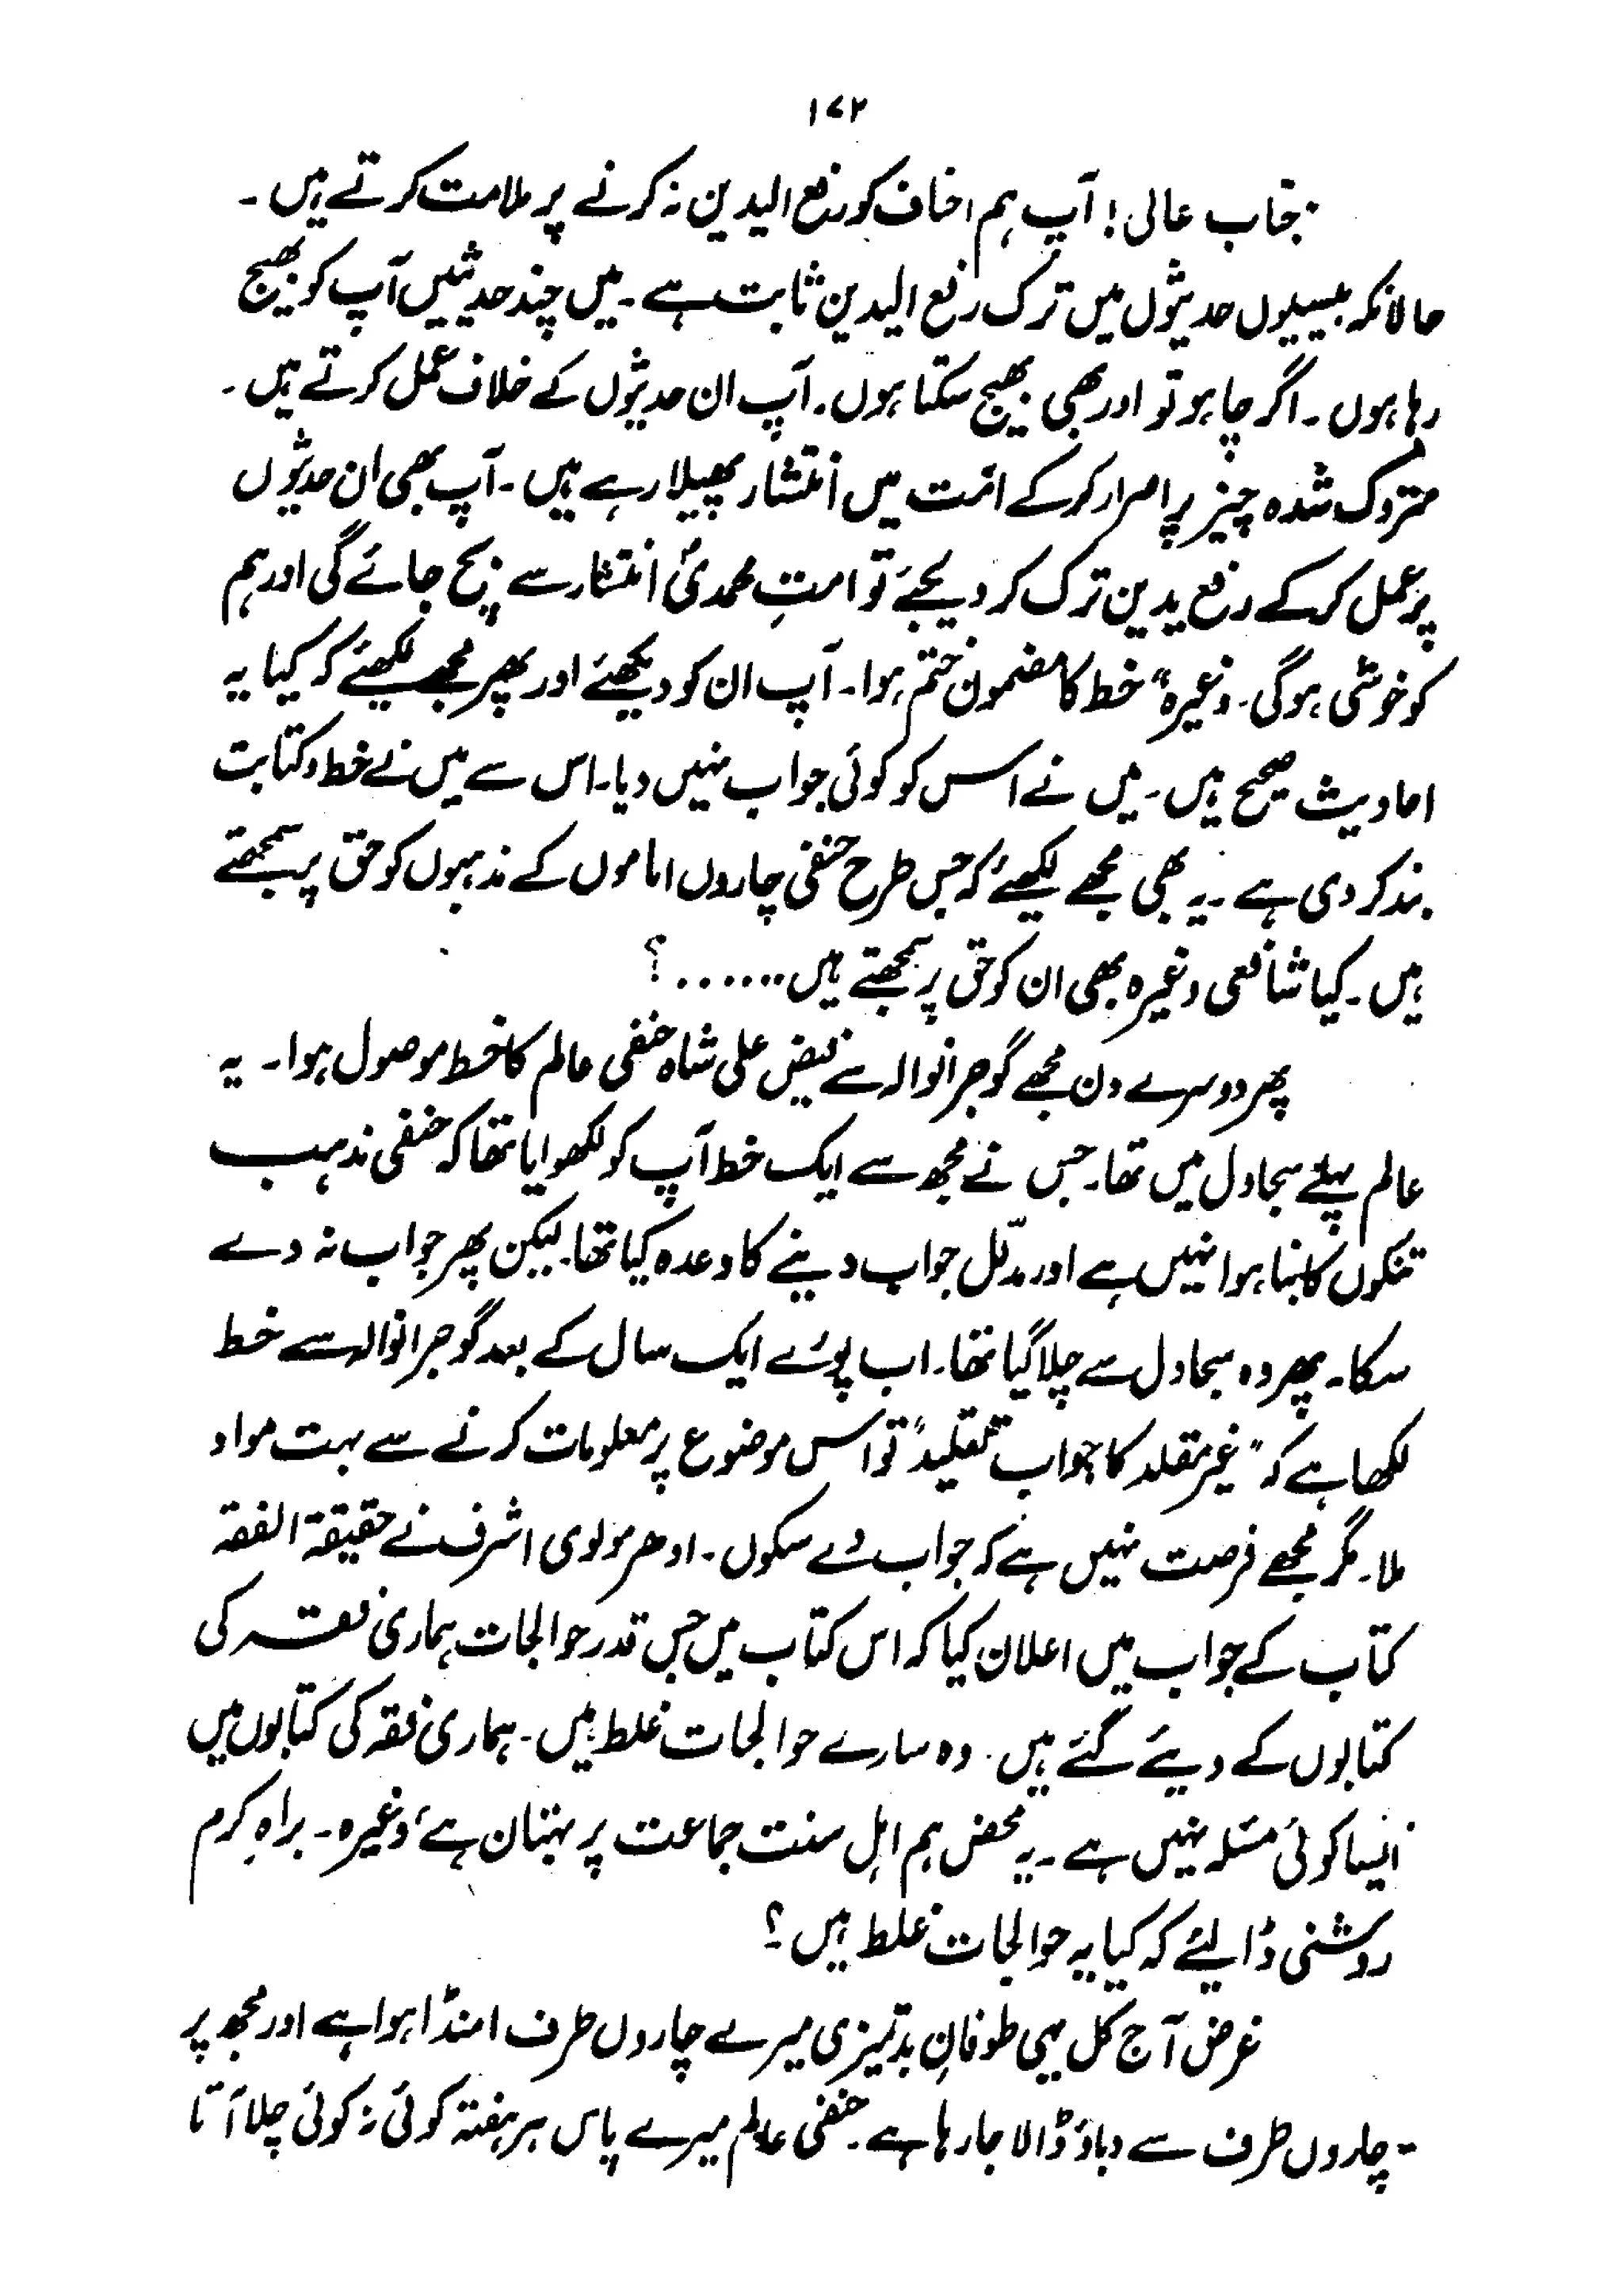 ۱۷۲
جناب عالی! آپ ہم احناف کو رفع الیدین نہ کرنے پر ملامت کرتے ہیں۔
حالانکہ بیسیوں حدیثوں میں ترک رفع الیدین ثابت ہے۔ میں چند حدیثیں آپ کو بھیج
رہا ہوں۔ اگر چاہو تو اور بھی بھیج سکتا ہوں۔ آپ ان حدیثوں کے خلاف عمل کرتے ہیں۔
متروک شدہ چیز پر اصرار کر کے امّت میں انتشار پھیلا رہے ہیں۔ آپ بھی ان حدیثوں
پر عمل کر کے رفع یدین ترک کر دیجئے تو امتِ محمدیؐ انتشار سے بچ جائے گی اور ہم
کو خوشی ہوگی۔ وغیرہ" خط کا مضمون ختم ہوا۔ آپ ان کو دیکھئے اور پھر مجھے لکھئے کہ کیا یہ
احادیث صحیح ہیں۔ میں نے اس کو کوئی جواب نہیں دیا۔ اس سے میں نے خط و کتابت
بند کر دی ہے۔ یہ بھی مجھے لکھئے کہ جس طرح حنفی چاروں اماموں کے مذہبوں کو حق پر سمجھتے
ہیں۔ کیا شافعی وغیرہ بھی ان کو حق پر سمجھتے ہیں......؟
پھر دوسرے دن مجھے گوجرانوالہ سے فیض علی شاہ حنفی عالم کا خط موصول ہوا۔ یہ
عالم پہلے سجاول میں تھا۔ جس نے مجھ سے ایک خط آپ کو لکھوایا تھا کہ حنفی مذہب
تنکوں کا بنا ہوا نہیں ہے اور مدلّل جواب دینے کا وعدہ کیا تھا۔ لیکن پھر جواب نہ دے
سکا۔ پھر وہ سجاول سے چلا گیا تھا۔ اب پورے ایک سال کے بعد گوجرانوالہ سے خط
لکھا ہے کہ "غیر مقلد کا جواب تقلید" تو اس موضوع پر معلومات کرنے سے بہت مواد
ملا۔ مگر مجھے فرصت نہیں ہے کہ جواب دے سکوں۔ ادھر مولوی اشرف نے حقیقۃ الفقہ
کتاب کے جواب میں اعلان کیا کہ اس کتاب میں جس قدر حوالجات ہماری فقہ کی
کتابوں کے دیئے گئے ہیں۔ وہ سارے حوالجات غلط ہیں۔ ہماری فقہ کی کتابوں میں
ایسا کوئی مسئلہ نہیں ہے۔ یہ محض ہم اہل سنت جماعت پر بہتان ہے" وغیرہ۔ براہِ کرم
روشنی ڈالیئے کہ کیا یہ حوالجات غلط ہیں؟
غرض آج کل یہی طوفانِ بدتمیزی میرے چاروں طرف امنڈا ہوا ہے اور مجھ پر
چاروں طرف سے دباؤ ڈالا جا رہا ہے۔ حنفی عالم میرے پاس ہر ہفتہ کوئی نہ کوئی چلا آتا